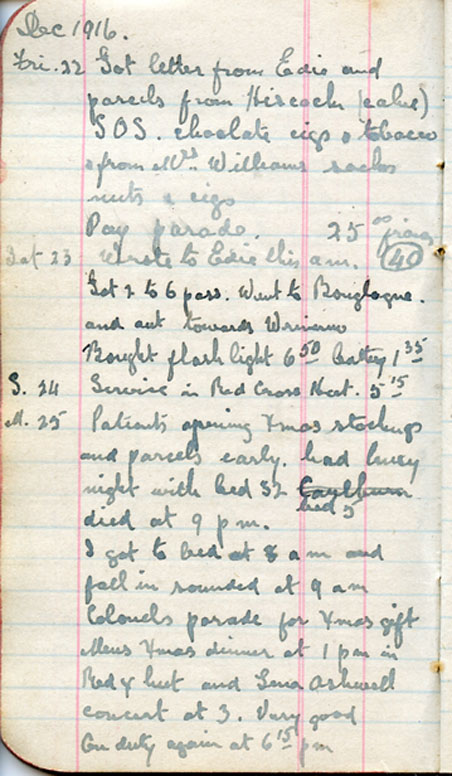 Dec 1916.
Fri. 22 Got letter from Edie and
parcels from Hiscock (cake)
SOS. choclate cigs & tobacco
& from Mrs. Williams socks
nuts & cigs
Pay parade. 25 00 francs
Sat 23 Wrote to Edie this am. (40)
Got 2 to 6 pass. Went to Bouglogne.
and out towards
Bought flash light 6 50 battey 1 35
S. 24 Service in Red Cross Hut. 5 15
M. 25 Patients opening Xmas stockings
and parcels early. had busy
night with bed 32
bed 5
died at 9 pm.
I got to bed at 8 am and
fall in sounded at 9 am
Colonels parade for Xmas gift
Mens Xmas dinner at 1 pm in
Red X hut and Lena Ashwell
concert at 3. Very good
On duty again at 6 15 pm